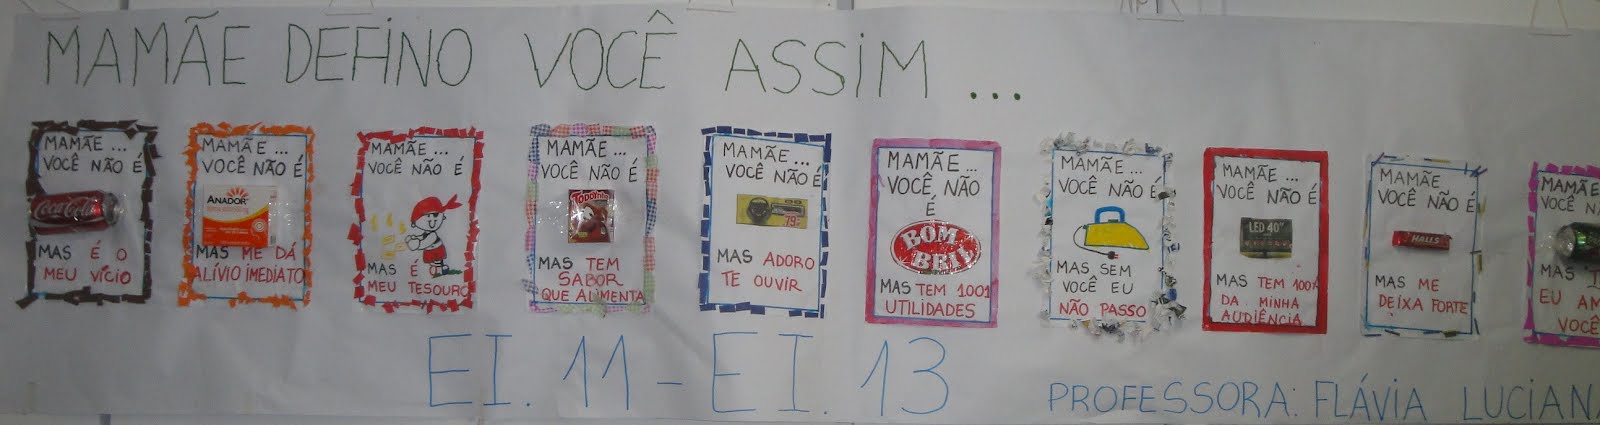 MAMÃE DEFINO VOCÊ ASSIM ...
MAMÃE ...
VOCÊ NÃO É
Coca-Cola
MAS É O
MEU VÍCIO
MAMÃE ...
VOCÊ NÃO É
ANADOR
MAS ME DÁ
ALÍVIO IMEDIATO
MAMÃE ...
VOCÊ NÃO É
MAS É O
MEU TESOURO
MAMÃE ...
VOCÊ NÃO É
TODDYNHO
MAS TEM
SABOR
QUE ALIMENTA
MAMÃE ...
VOCÊ NÃO É
79,-
MAS ADORO
TE OUVIR
MAMÃE ...
VOCÊ NÃO
É
BOM
BRIL
MAS TEM 1001
UTILIDADES
MAMÃE ...
VOCÊ NÃO É
MAS SEM
VOCÊ EU
NÃO PASSO
MAMÃE ...
VOCÊ NÃO É
LED 40"
MAS TEM 100%
DA MINHA
AUDIÊNCIA
MAMÃE
VOCÊ NÃO É
HALLS
MAS ME
DEIXA FORTE
MAMÃE
VOCÊ
MAS
EU AM
VOCÊ
EI. 11 - EI. 13
PROFESSORA: FLÁVIA LUCIANA